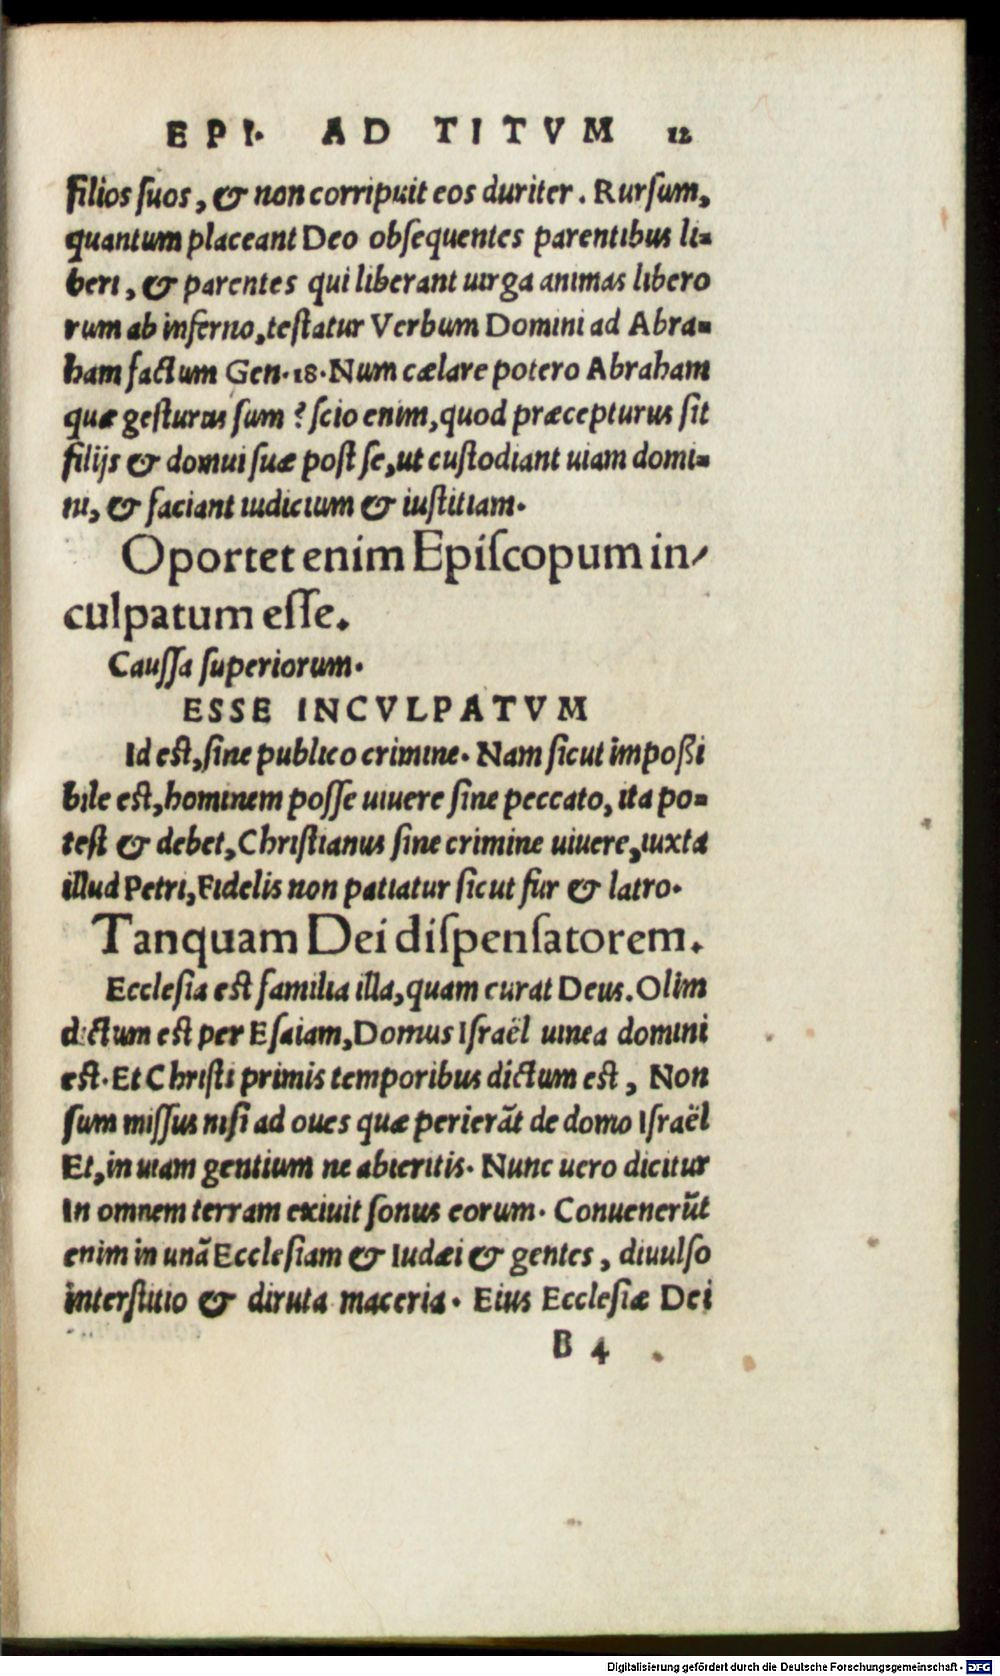 EPI. AD TITVM 12
filios suos, & non corripuit eos duriter. Rursum,
quantum placeant Deo obsequentes parentibus li-
beri, & parentes qui liberant uirga animas libero
rum ab inferno, testatur Verbum Domini ad Abra-
ham factum Gen. 18. Num cælare potero Abraham
quæ gesturus sum? scio enim, quod præcepturus sit
filijs & domui suæ post se, ut custodiant uiam domi-
ni, & faciant iudicium & iustitiam.
Oportet enim Episcopum in-
culpatum esse.
Caussa superiorum.
ESSE INCVLPATVM
Id est, sine publico crimine. Nam sicut impoßi
bile est, hominem posse uiuere sine peccato, ita po-
test & debet, Christianus sine crimine uiuere, iuxta
illud Petri, Fidelis non patiatur sicut fur & latro.
Tanquam Dei dispensatorem.
Ecclesia est familia illa, quam curat Deus. Olim
dictum est per Esaiam, Domus Israël uinea domini
est. Et Christi primis temporibus dictum est, Non
sum missus nisi ad oues quæ perierãt de domo Israël
Et, in uiam gentium ne abieritis. Nunc uero dicitur
In omnem terram exiuit sonus eorum. Conuenerũt
enim in unã Ecclesiam & Iudæi & gentes, diuulso
interstitio & diruta maceria. Eius Ecclesiæ Dei
B 4
Digitalisierung gefördert durch die Deutsche Forschungsgemeinschaft - DFG